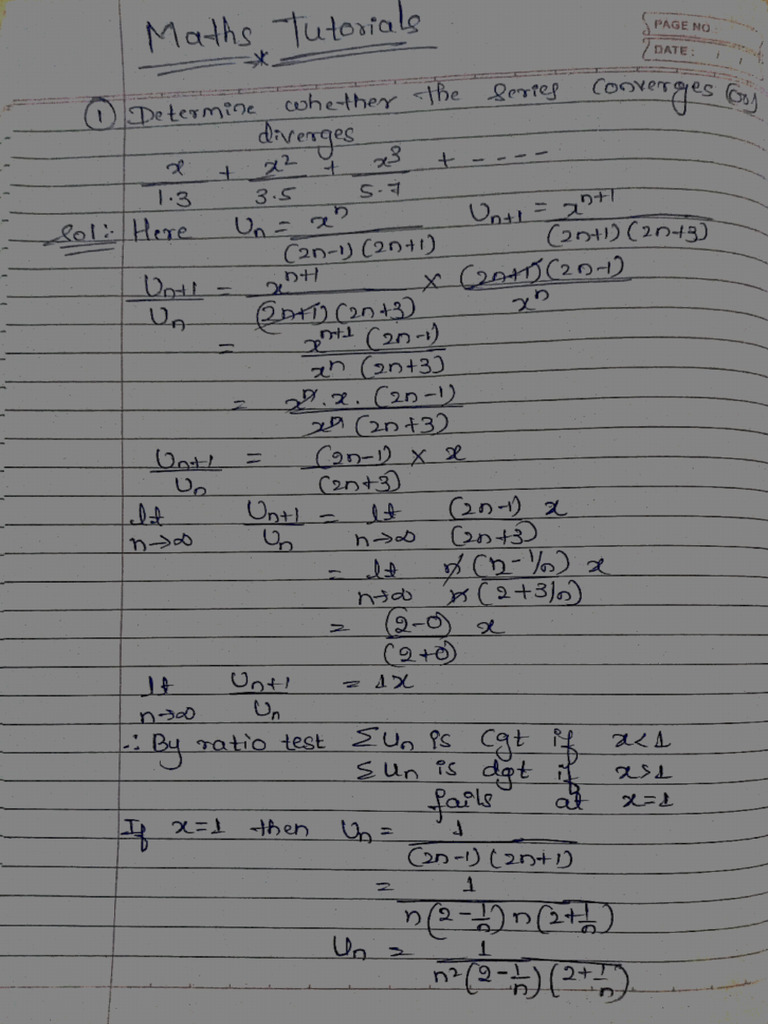 Maths Tutorials
PAGE NO.
DATE:
① Determine whether the series converges (or)
diverges
x/1.3 + x²/3.5 + x³/5.7 + ----
Sol:- Here Un = xⁿ/(2n-1)(2n+1) Un+1 = xⁿ⁺¹/(2n+1)(2n+3)
Un+1/Un = xⁿ⁺¹/(2n+1)(2n+3) × (2n+1)(2n-1)/xⁿ
= xⁿ⁺¹ (2n-1)/xⁿ (2n+3)
= xⁿ.x.(2n-1)/xⁿ (2n+3)
Un+1/Un = (2n-1)/(2n+3) × x
lt n→∞ Un+1/Un = lt n→∞ (2n-1)/(2n+3) x
= lt n→∞ n(2-1/n)/n(2+3/n) x
= (2-0)/(2+0) x
lt n→∞ Un+1/Un = 1x
∴ By ratio test ΣUn is cgt if x<1
ΣUn is dgt if x>1
fails at x=1
If x=1 then Un = 1/(2n-1)(2n+1)
= 1/n(2-1/n)n(2+1/n)
Un = 1/n²(2-1/n)(2+1/n)